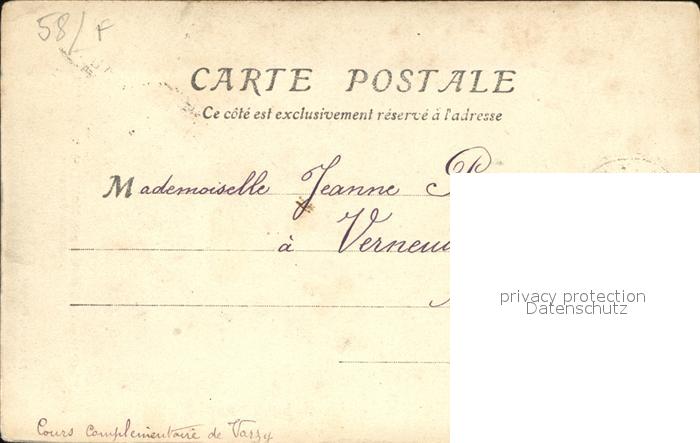 58/ F
CARTE POSTALE
Ce côté est exclusivement réservé à l'adresse
Mademoiselle Jeanne
à
privacy protection
Datenschutz
Cours complémentaire de Varzy